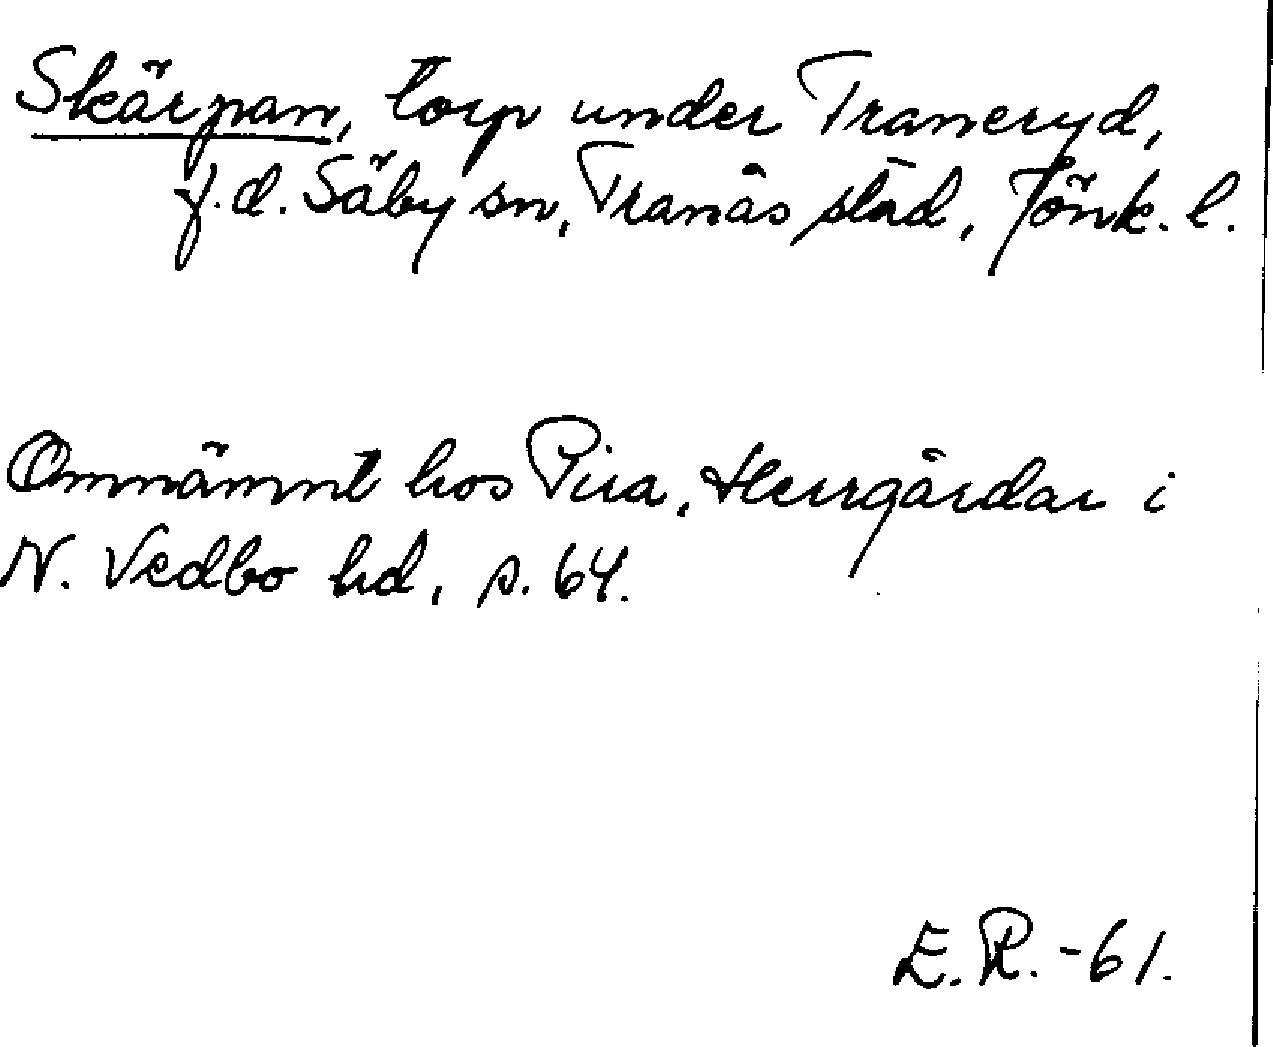 Skärpan, torp under Traneryd,
f.d. Säby sn, Tranås stad, Jönk. l.
Omnämnt hos Pira, Herrgårdar i
N. Vedbo hd, s. 64.
E.R. -61.